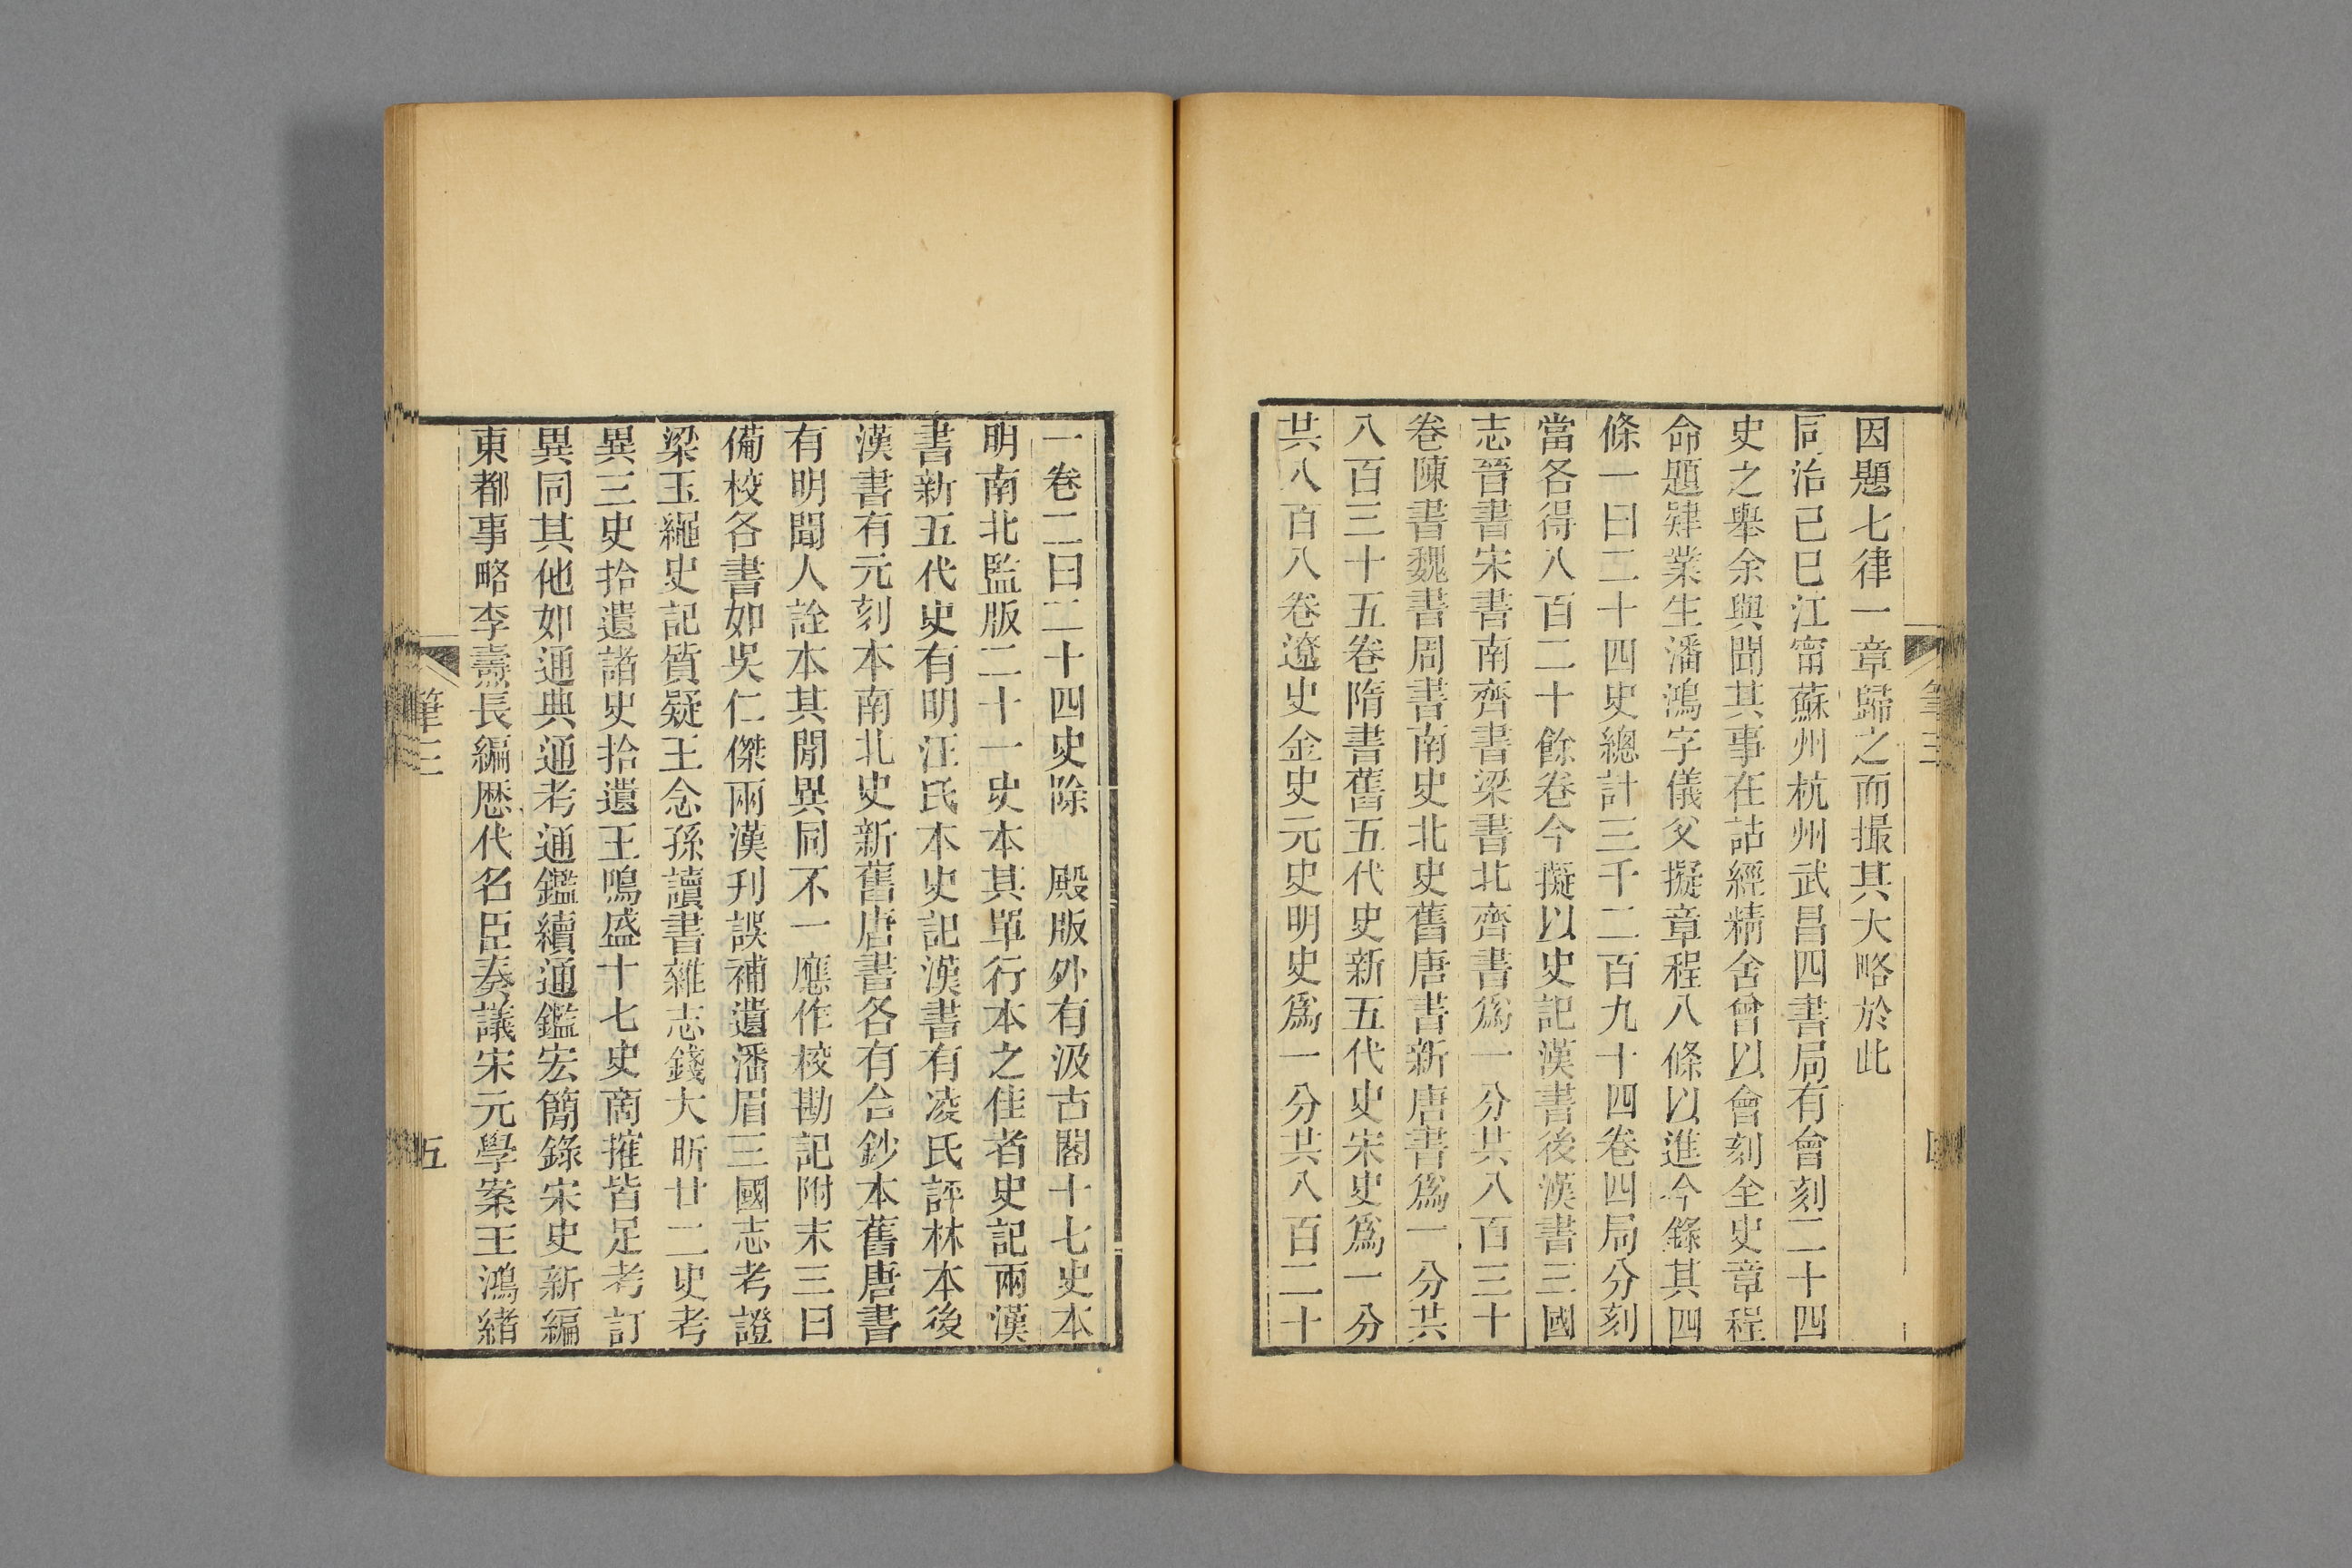 因題七律一章歸之而撮其大略於此
同治己巳江甯蘇州杭州武昌四書局有會刻二十四
史之舉余與聞其事在詁經精舍曾以會刻全史章程
命題肄業生潘鴻字儀父擬章程八條以進今錄其四
條一曰二十四史總計三千二百九十四卷四局分刻
當各得八百二十餘卷今擬以史記漢書後漢書三國
志晉書宋書南齊書梁書北齊書爲一分共八百三十
卷陳書魏書周書南史北史舊唐書新唐書爲一分共
八百三十五卷隋書舊五代史新五代史宋史爲一分
共八百八卷遼史金史元史明史爲一分共八百二十
筆三
一卷二曰二十四史除　殿版外有汲古閣十七史本
明南北監版二十一史本其單行本之佳者史記兩漢
書新五代史有明汪氏本史記漢書有凌氏評林本後
漢書有元刻本南北史新舊唐書各有合鈔本舊唐書
有明聞人詮本其閒異同不一應作校勘記附末三曰
備校各書如吳仁傑兩漢刋誤補遺潘眉三國志考證
梁玉繩史記質疑王念孫讀書雜志錢大昕廿二史考
異三史拾遺諸史拾遺王鳴盛十七史商搉皆足考訂
異同其他如通典通考通鑑續通鑑宏簡錄宋史新編
東都事略李燾長編歷代名臣奏議宋元學案王鴻緒
筆三
五